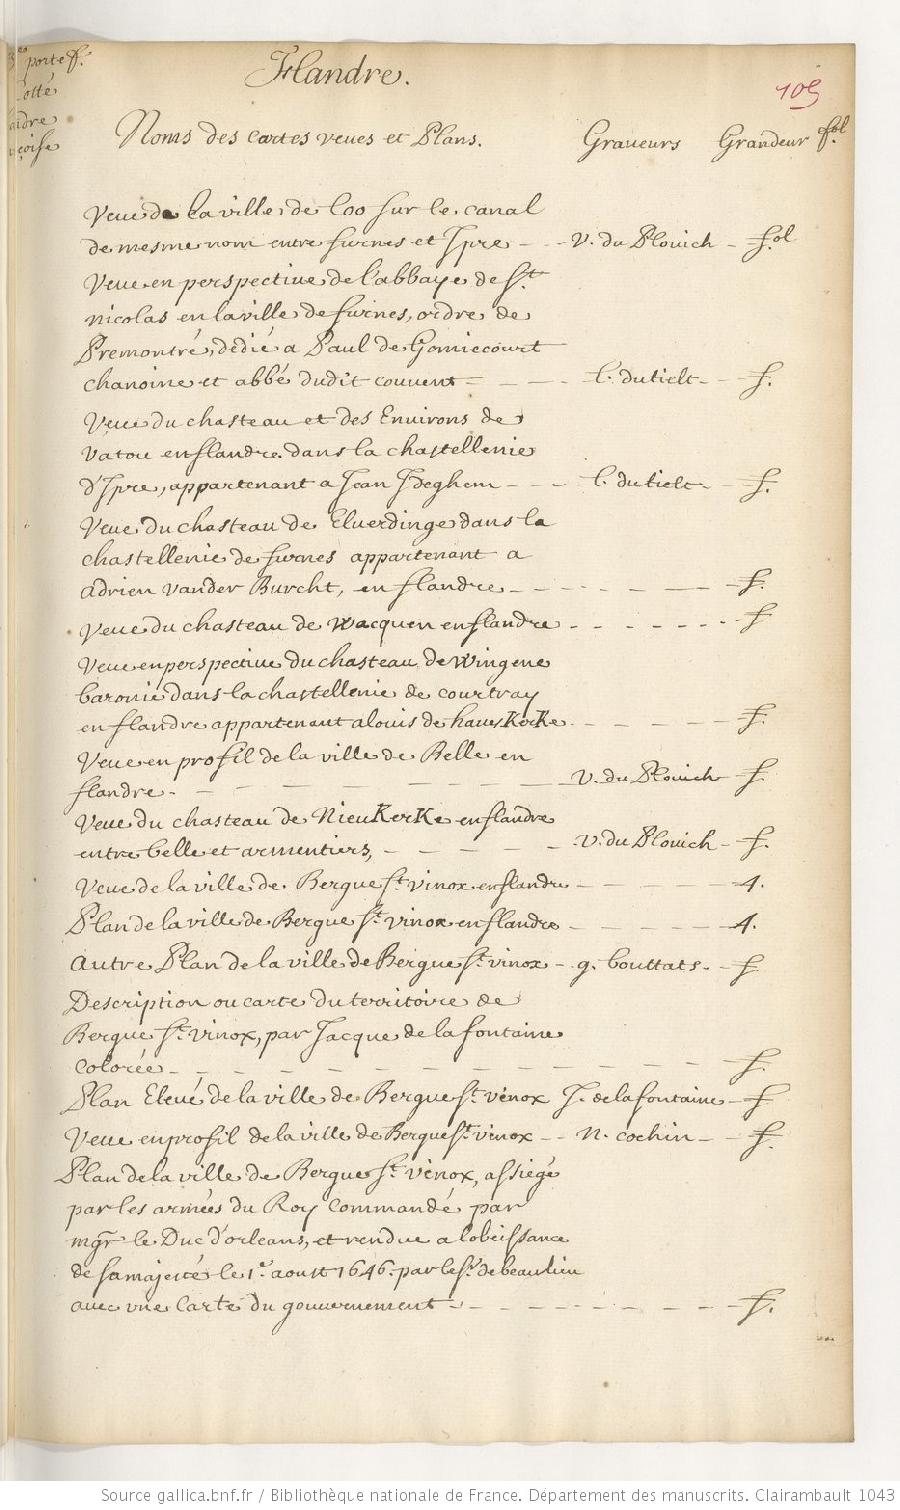 portef.
Flandre.
105
Noms des cartes veues et Plans. Graveurs Grandeur fol.
Veue de la ville de loo sur le canal
de mesme nom entre furnes et Jpre - - v. du Plouich - fol
Veue en perspective de l'abbaye de St.
nicolas en la ville de furnes, ordre de
Premontré, dedié a Paul de Gomiecourt
chanoine et abbé dudit couvent - - - l. du tielt - f.
Veue du chasteau et des Environs de
Vatou en flandre dans la chastellenie
d'Jpre, appartenant a Jean Jdeghem - - - l. du tielt - f.
Veue du chasteau de Elverdinge dans la
chastellenie de furnes appartenant a
adrien vander Burcht, en flandre - - - - - - f.
Veue du chasteau de Wacquen en flandre - - - - - - f
Veue en perspective du chasteau de Wingene
baronie dans la chastellenie de courtray
en flandre appartenant a louis de haueskerke - - - - f.
Veue en profil de la ville de Belle en
flandre - - - - - - - - - v. du Plouich - f.
Veue du chasteau de Nieukerke en flandre
entre belle et armentiers, - - - - - v. du Plouich - f.
Veue de la ville de Bergue St. vinox en flandre - - - - - 4.
Plan de la ville de Bergue St. vinox en flandre - - - - - 4.
Autre Plan de la ville de Bergue St. vinox - g. bouttats - f
Description ou carte du territoire de
Bergue St. vinox, par Jacque de la fontaine
colorée - - - - - - - - - - - - - f.
Plan Elevé de la ville de Bergue St. vinox J. de la fontaine - f
Veue en profil de la ville de Bergue St. vinox - - n. cochin - f.
Plan de la ville de Bergue St. vinox, assiegé
par les armées du Roy commandé par
mgr. le Duc d'orleans, et rendue a lobeissance
de sa majesté le 1er. aoust 1646. par le Sr. de beaulieu
avec vne Carte du gouvernement - - - - - - - - f.
Source gallica.bnf.fr / Bibliothèque nationale de France. Département des manuscrits. Clairambault 1043